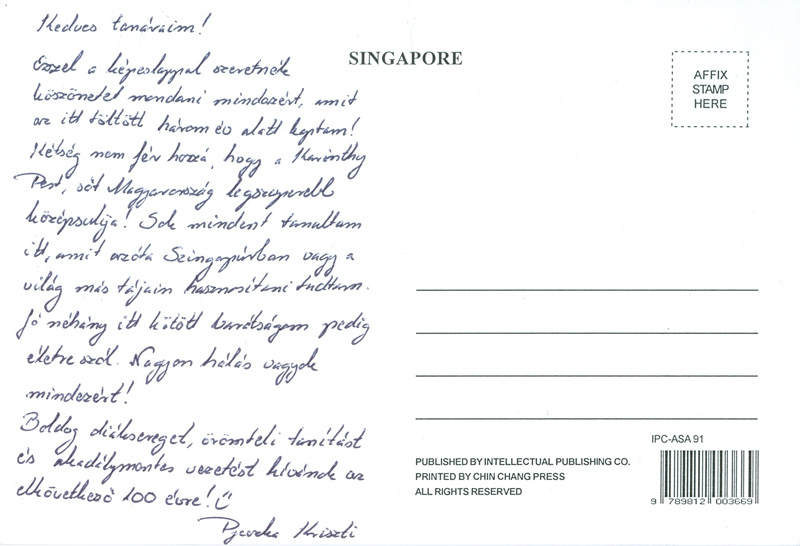 Kedves tanáraim!
Ezzel a képeslappal szeretnék
köszönetet mondani mindazért, amit
az itt töltött három év alatt kaptam!
Kétség nem fér hozzá, hogy a Karinthy
Pest, sőt Magyarország legszuperebb
középsulija! Sok mindent tanultam
itt, amit azóta Szingapúrban vagy a
világ más tájain hasznosítani tudtam.
Jó néhány itt kötött barátságom pedig
életre szól. Nagyon hálás vagyok
mindezért!
Boldog diáksereget, örömteli tanítást
és akadálymentes vezetést kívánok az
elkövetkező 100 évre!
Kriszti
SINGAPORE
AFFIX
STAMP
HERE
IPC-ASA 91
PUBLISHED BY INTELLECTUAL PUBLISHING CO.
PRINTED BY CHIN CHANG PRESS
ALL RIGHTS RESERVED
9 789812 003669